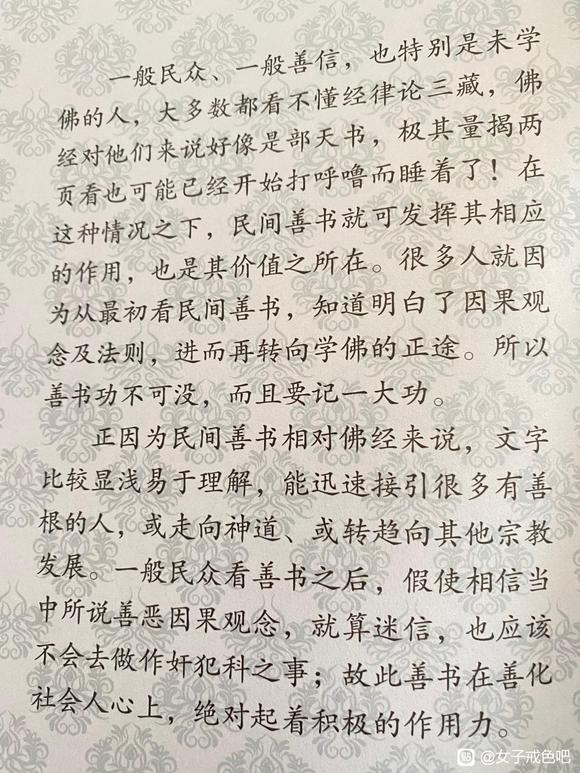 一般民众、一般善信，也特别是未学
佛的人，大多数都看不懂经律论三藏，佛
经对他们来说好像是部天书，极其量揭两
页看也可能已经开始打呼噜而睡着了！在
这种情况之下，民间善书就可发挥其相应
的作用，也是其价值之所在。很多人就因
为从最初看民间善书，知道明白了因果观
念及法则，进而再转向学佛的正途。所以
善书功不可没，而且要记一大功。
正因为民间善书相对佛经来说，文字
比较显浅易于理解，能迅速接引很多有善
根的人，或走向神道、或转趋向其他宗教
发展。一般民众看善书之后，假使相信当
中所说善恶因果观念，就算迷信，也应该
不会去做作奸犯科之事；故此善书在善化
社会人心上，绝对起着积极的作用力。
贴 @女子戒色吧